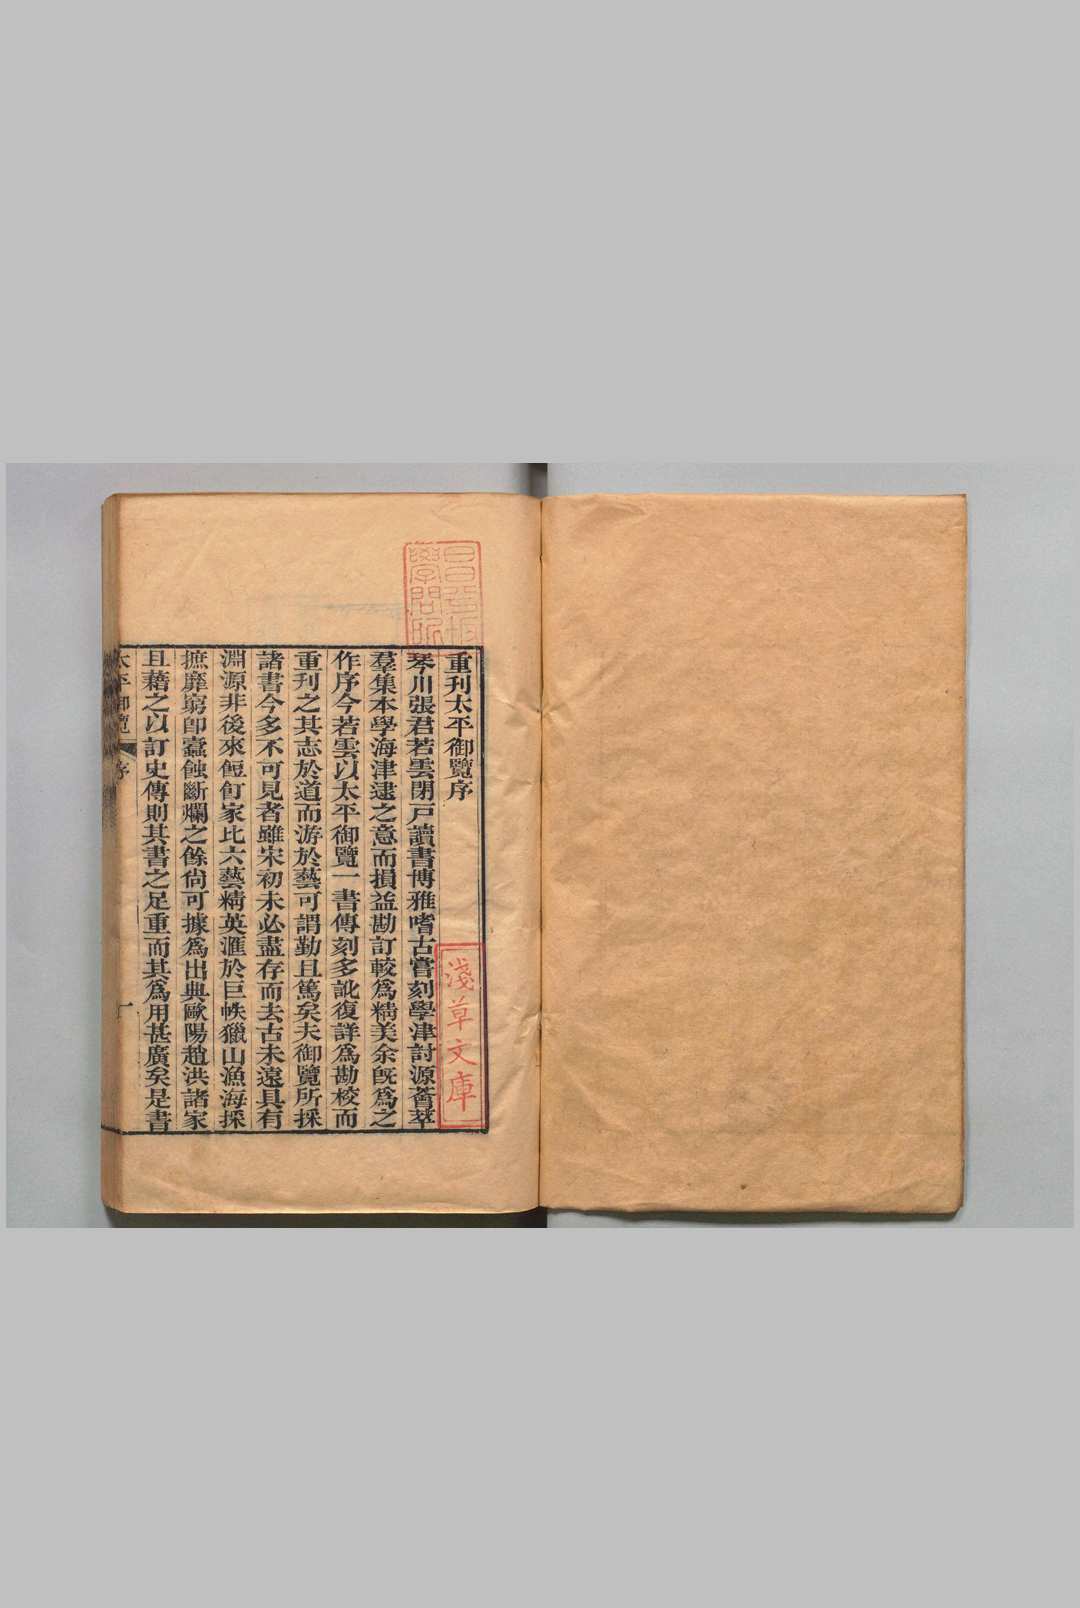 重刊太平御覽序
琴川張君若雲閉戸讀書博雅嗜古嘗刻學津討源薈萃
羣集本學海津逮之意而損益勘訂較爲精美余旣爲之
作序今若雲以太平御覽一書傳刻多訛復詳爲勘校而
重刊之其志於道而游於藝可謂勤且篤矣夫御覽所採
諸書今多不可見者雖宋初未必盡存而去古未遠具有
淵源非後來餖飣家比六藝精英滙於巨帙獵山漁海採
摭靡窮卽蠹蝕斷爛之餘尙可據爲出典歐陽趙洪諸家
且藉之以訂史傳則其書之足重而其爲用甚廣矣是書
太平御覽 序 一
昌平坂
學問所
淺草文庫